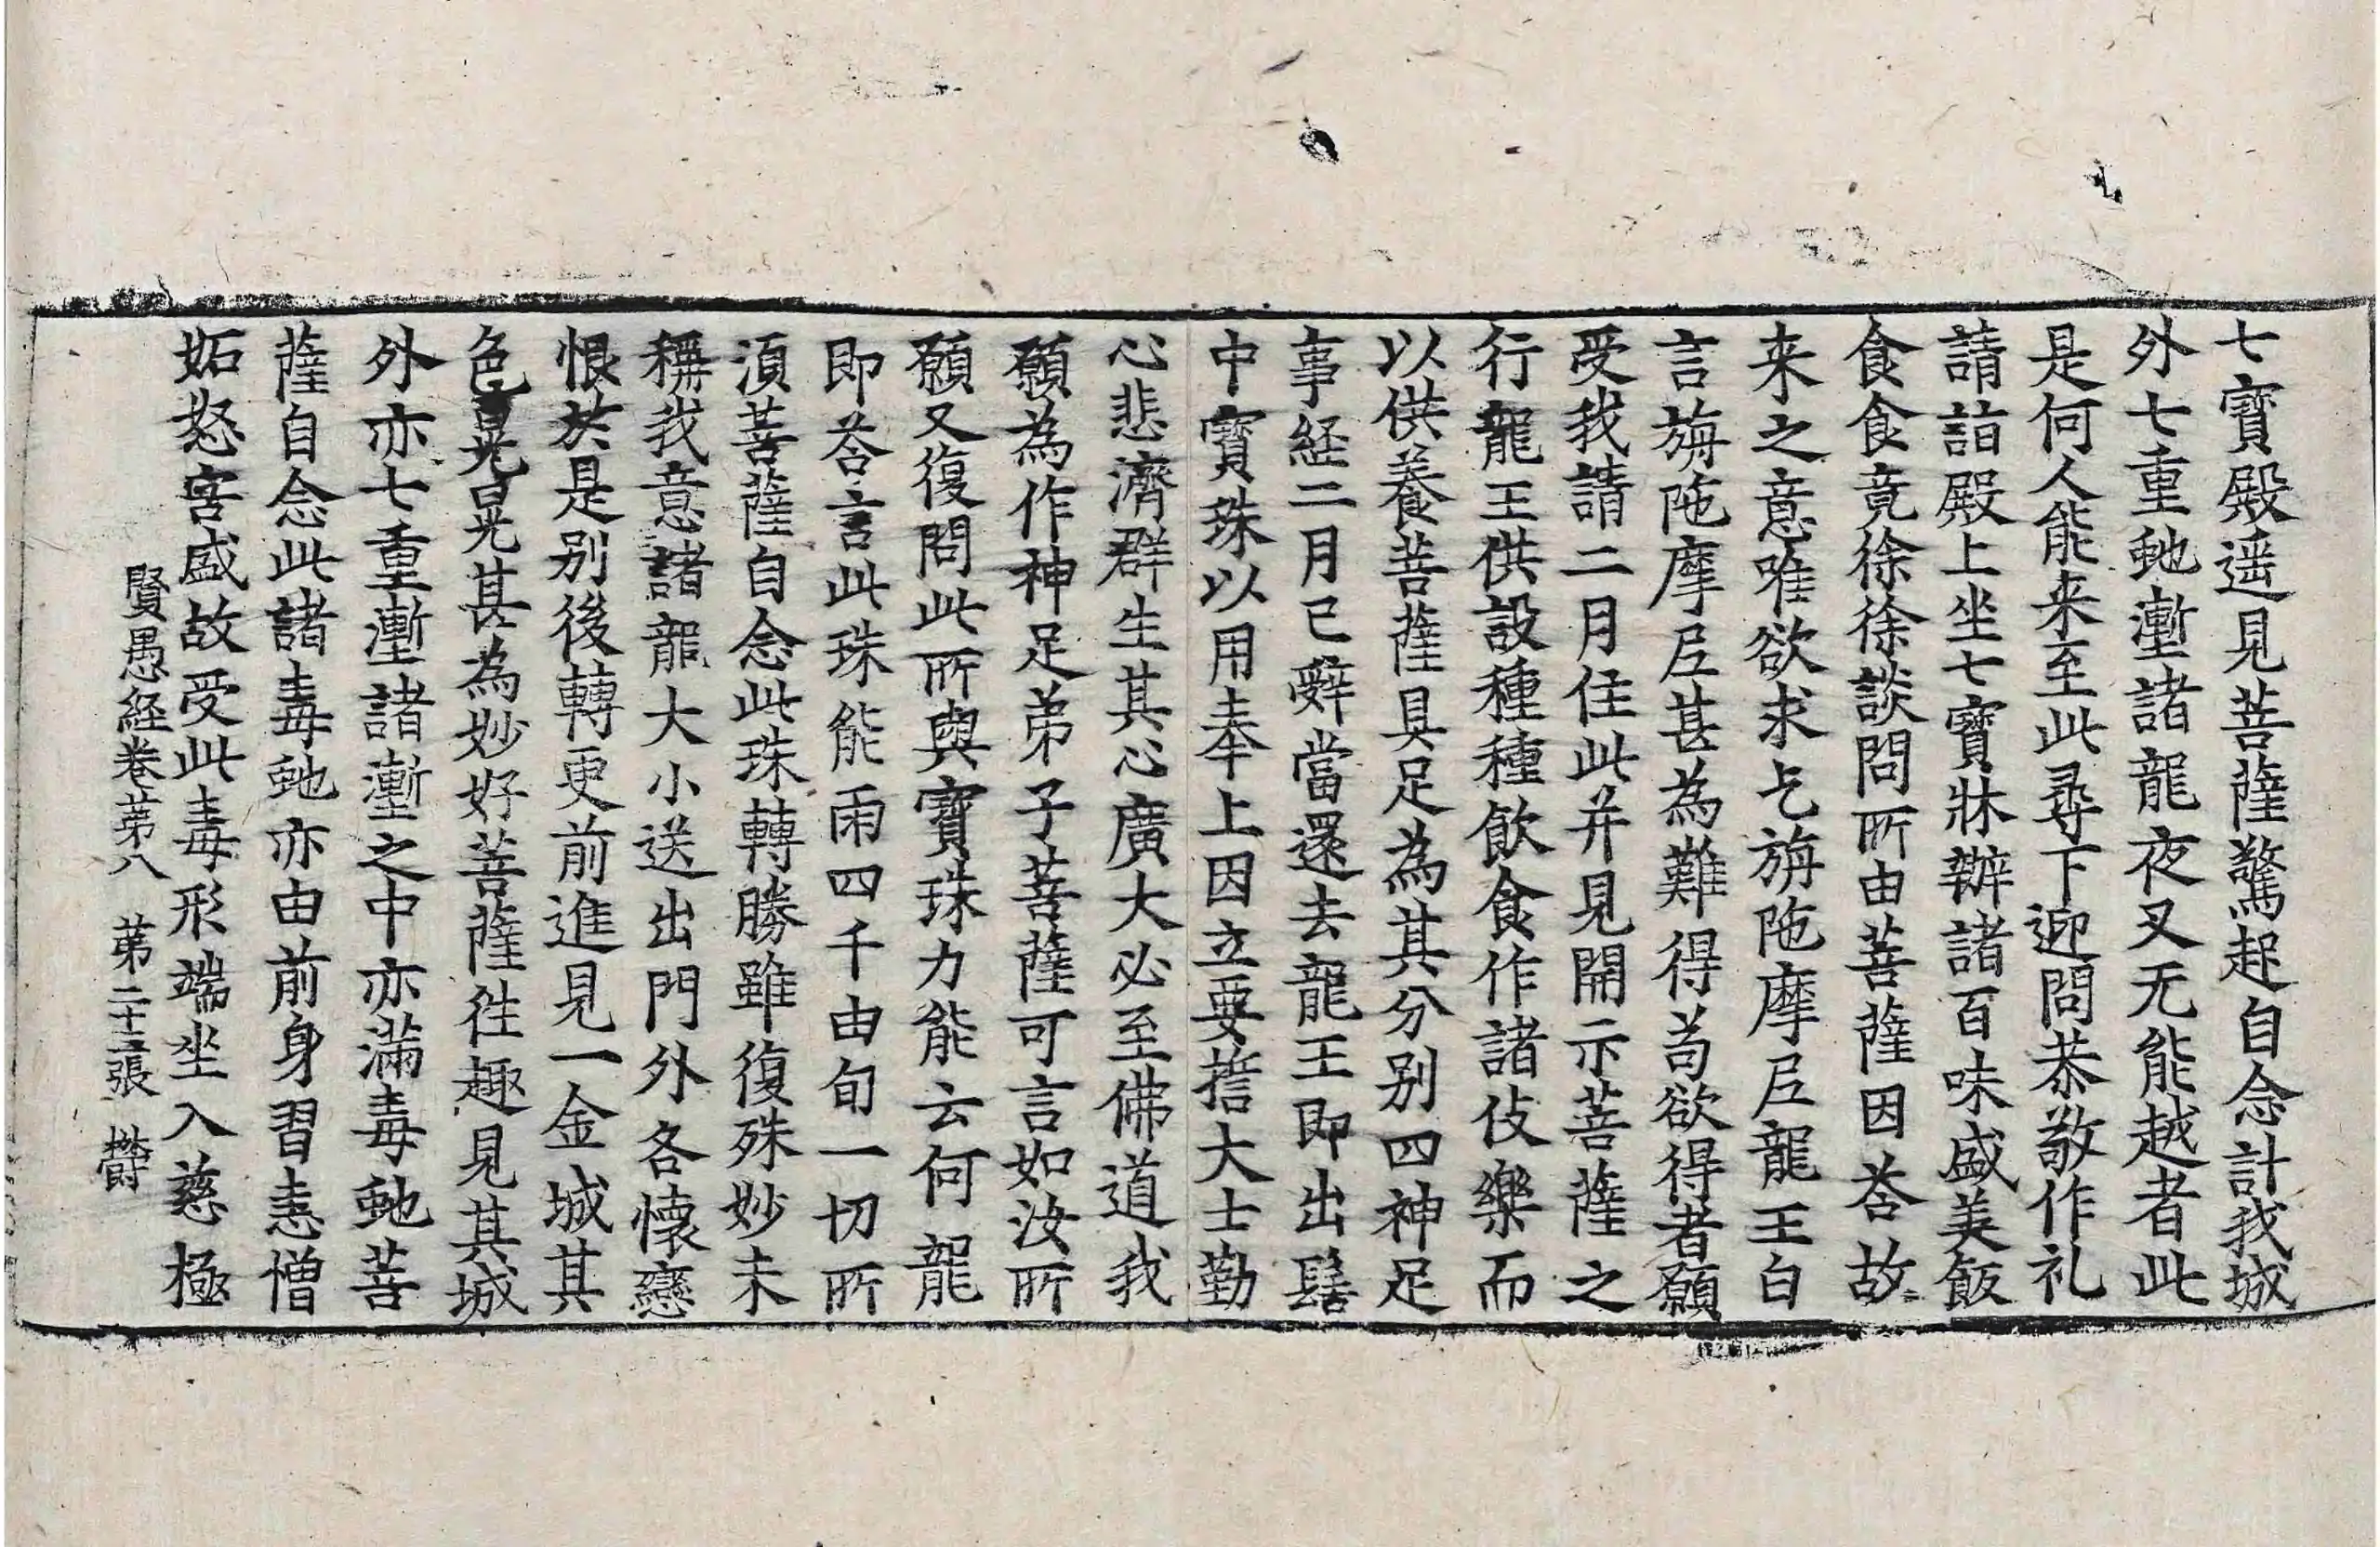 七寶殿遥見菩薩驚起自念計我城
外七重虵壍諸龍夜叉无能越者此
是何人能来至此尋下迎問恭敬作礼
請詣殿上坐七寶牀辦諸百味盛美飯
食食竟徐徐談問所由菩薩因荅故
来之意唯欲求乞旃陁摩尼龍王白
言旃陁摩尼甚為難得苟欲得者願
受我請二月住此并見開示菩薩之
行龍王供設種種飲食作諸伎樂而
以供養菩薩具足為其分别四神足
事経二月已辭當還去龍王即出髻
中寶珠以用奉上因立要誓大士勤
心悲濟群生其心廣大必至佛道我
願為作神足弟子菩薩可言如汝所
願又復問此所與寶珠力能云何龍
即荅言此珠能雨四千由旬一切所
湏菩薩自念此珠轉勝雖復殊妙未
稱我意諸龍大小送出門外各懷戀
恨於是别後轉更前進見一金城其
色晃晃甚為妙好菩薩徃趣見其城
外亦七重壍諸壍之中亦滿毒虵菩
薩自念此諸毒虵亦由前身習恚憎
妬怒害盛故受此毒形端坐入慈極
賢愚経卷苐八 苐二十三張 欝